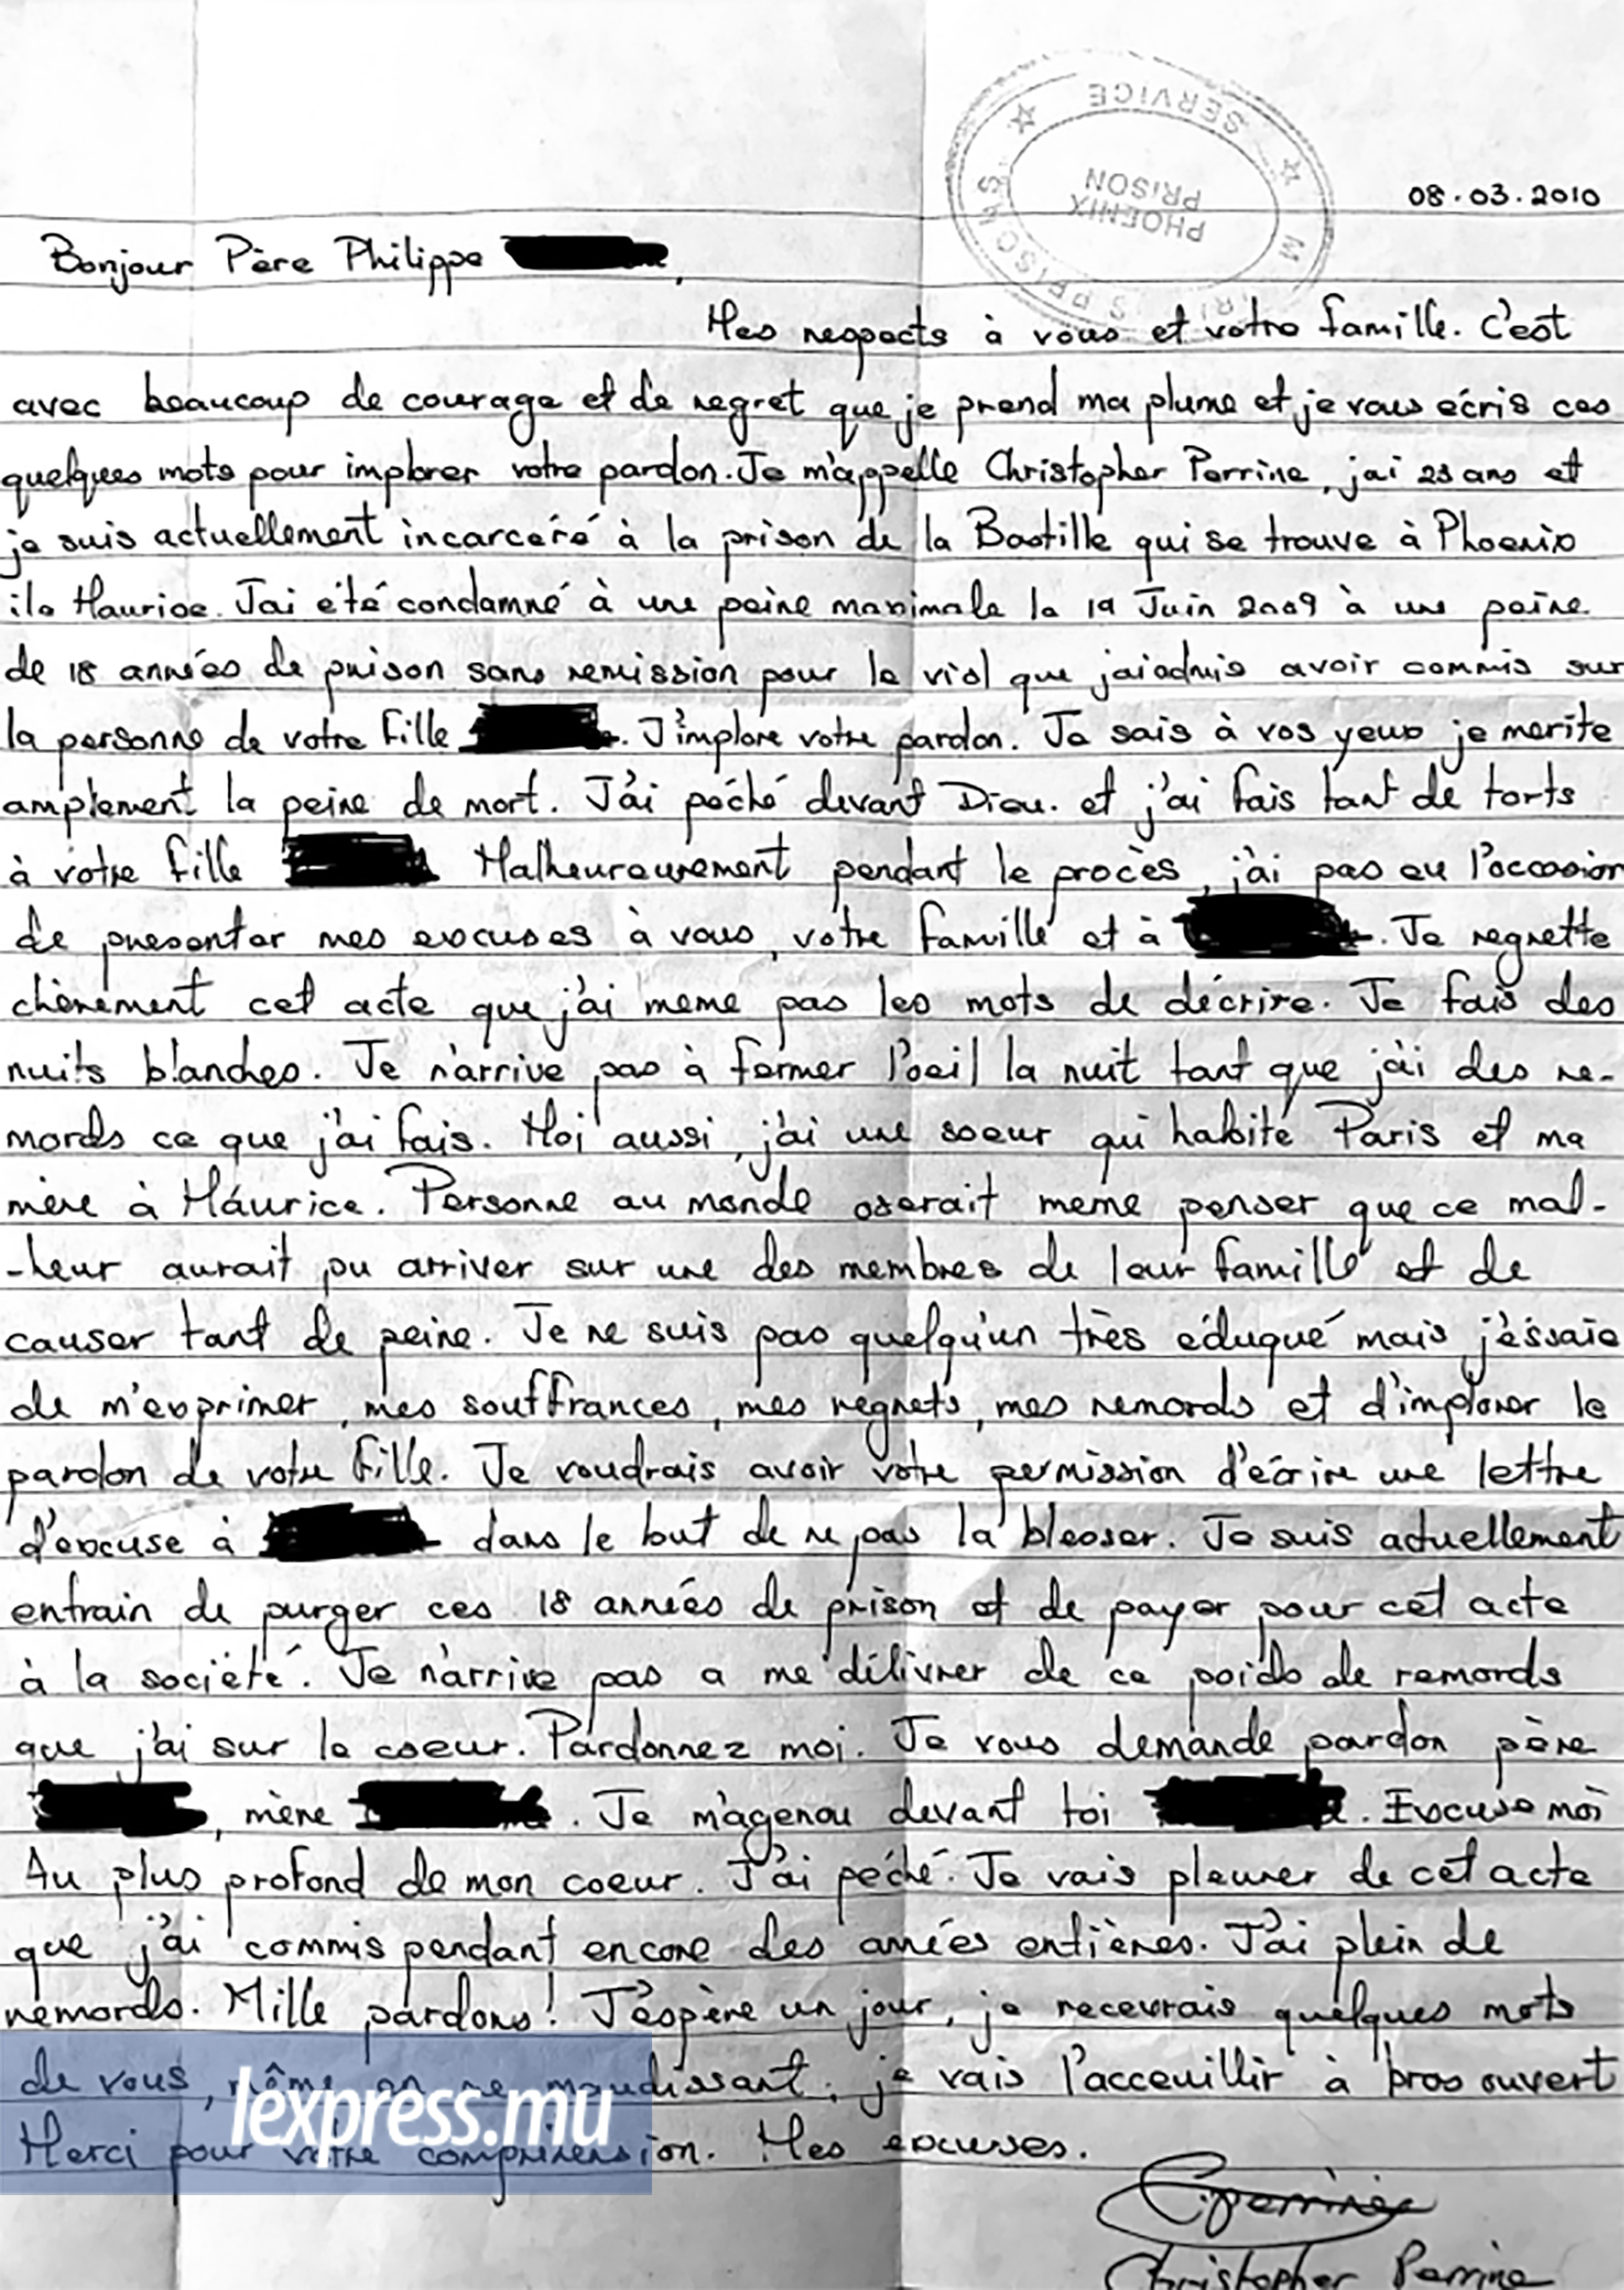 MAURITIUS PRISONS SERVICE
PHOENIX
PRISON
08.03.2010
Bonjour Père Philippe
Mes respects à vous et votre famille. C'est
avec beaucoup de courage et de regret que je prend ma plume et je vous ecris ces
quelques mots pour implorer votre pardon. Je m'appelle Christopher Perrine, j'ai 23 ans et
je suis actuellement incarcéré à la prison de la Bastille qui se trouve à Phoenix
ile Maurice. J'ai été condamné à une peine maximale le 19 Juin 2009 à une peine
de 18 années de prison sans remission pour le viol que j'ai admis avoir commis sur
la personne de votre fille . J'implore votre pardon. Je sais à vos yeux je merite
amplement la peine de mort. J'ai péché devant Dieu. et j'ai fais tant de torts
à votre fille Malheureusement pendant le procès, j'ai pas eu l'occasion
de presenter mes excuses à vous, votre famille et à . Je regrette
chèrement cet acte que j'ai meme pas les mots de décrire. Je fais des
nuits blanches. Je n'arrive pas à fermer l'oeil la nuit tant que j'ai des re-
mords ce que j'ai fais. Moi aussi, j'ai une soeur qui habite Paris et ma
mère à Maurice. Personne au monde oserait meme penser que ce mal-
-heur aurait pu arriver sur une des membres de leur famille et de
causer tant de peine. Je ne suis pas quelqu'un très éduqué mais j'éssaie
de m'exprimer, mes souffrances, mes regrets, mes remords et d'implorer le
pardon de votre fille. Je voudrais avoir votre permission d'écrire une lettre
d'excuse à dans le but de ne pas la blesser. Je suis actuellement
entrain de purger ces 18 années de prison et de payer pour cet acte
à la société. Je n'arrive pas a me délivrer de ce poids de remords
que j'ai sur le coeur. Pardonnez moi. Je vous demande pardon père
, mère . Je m'agenou devant toi . Excuse moi
Au plus profond de mon coeur. J'ai péché. Je vais pleurer de cet acte
que j'ai commis pendant encore des années entières. J'ai plein de
remords. Mille pardons! J'éspère un jour, je recevrais quelques mots
de vous, même en me maudissant, je vais l'acceuillir à bras ouvert
Merci pour votre compréhension. Mes excuses.
lexpress.mu
C.perrine
Christopher Perrine